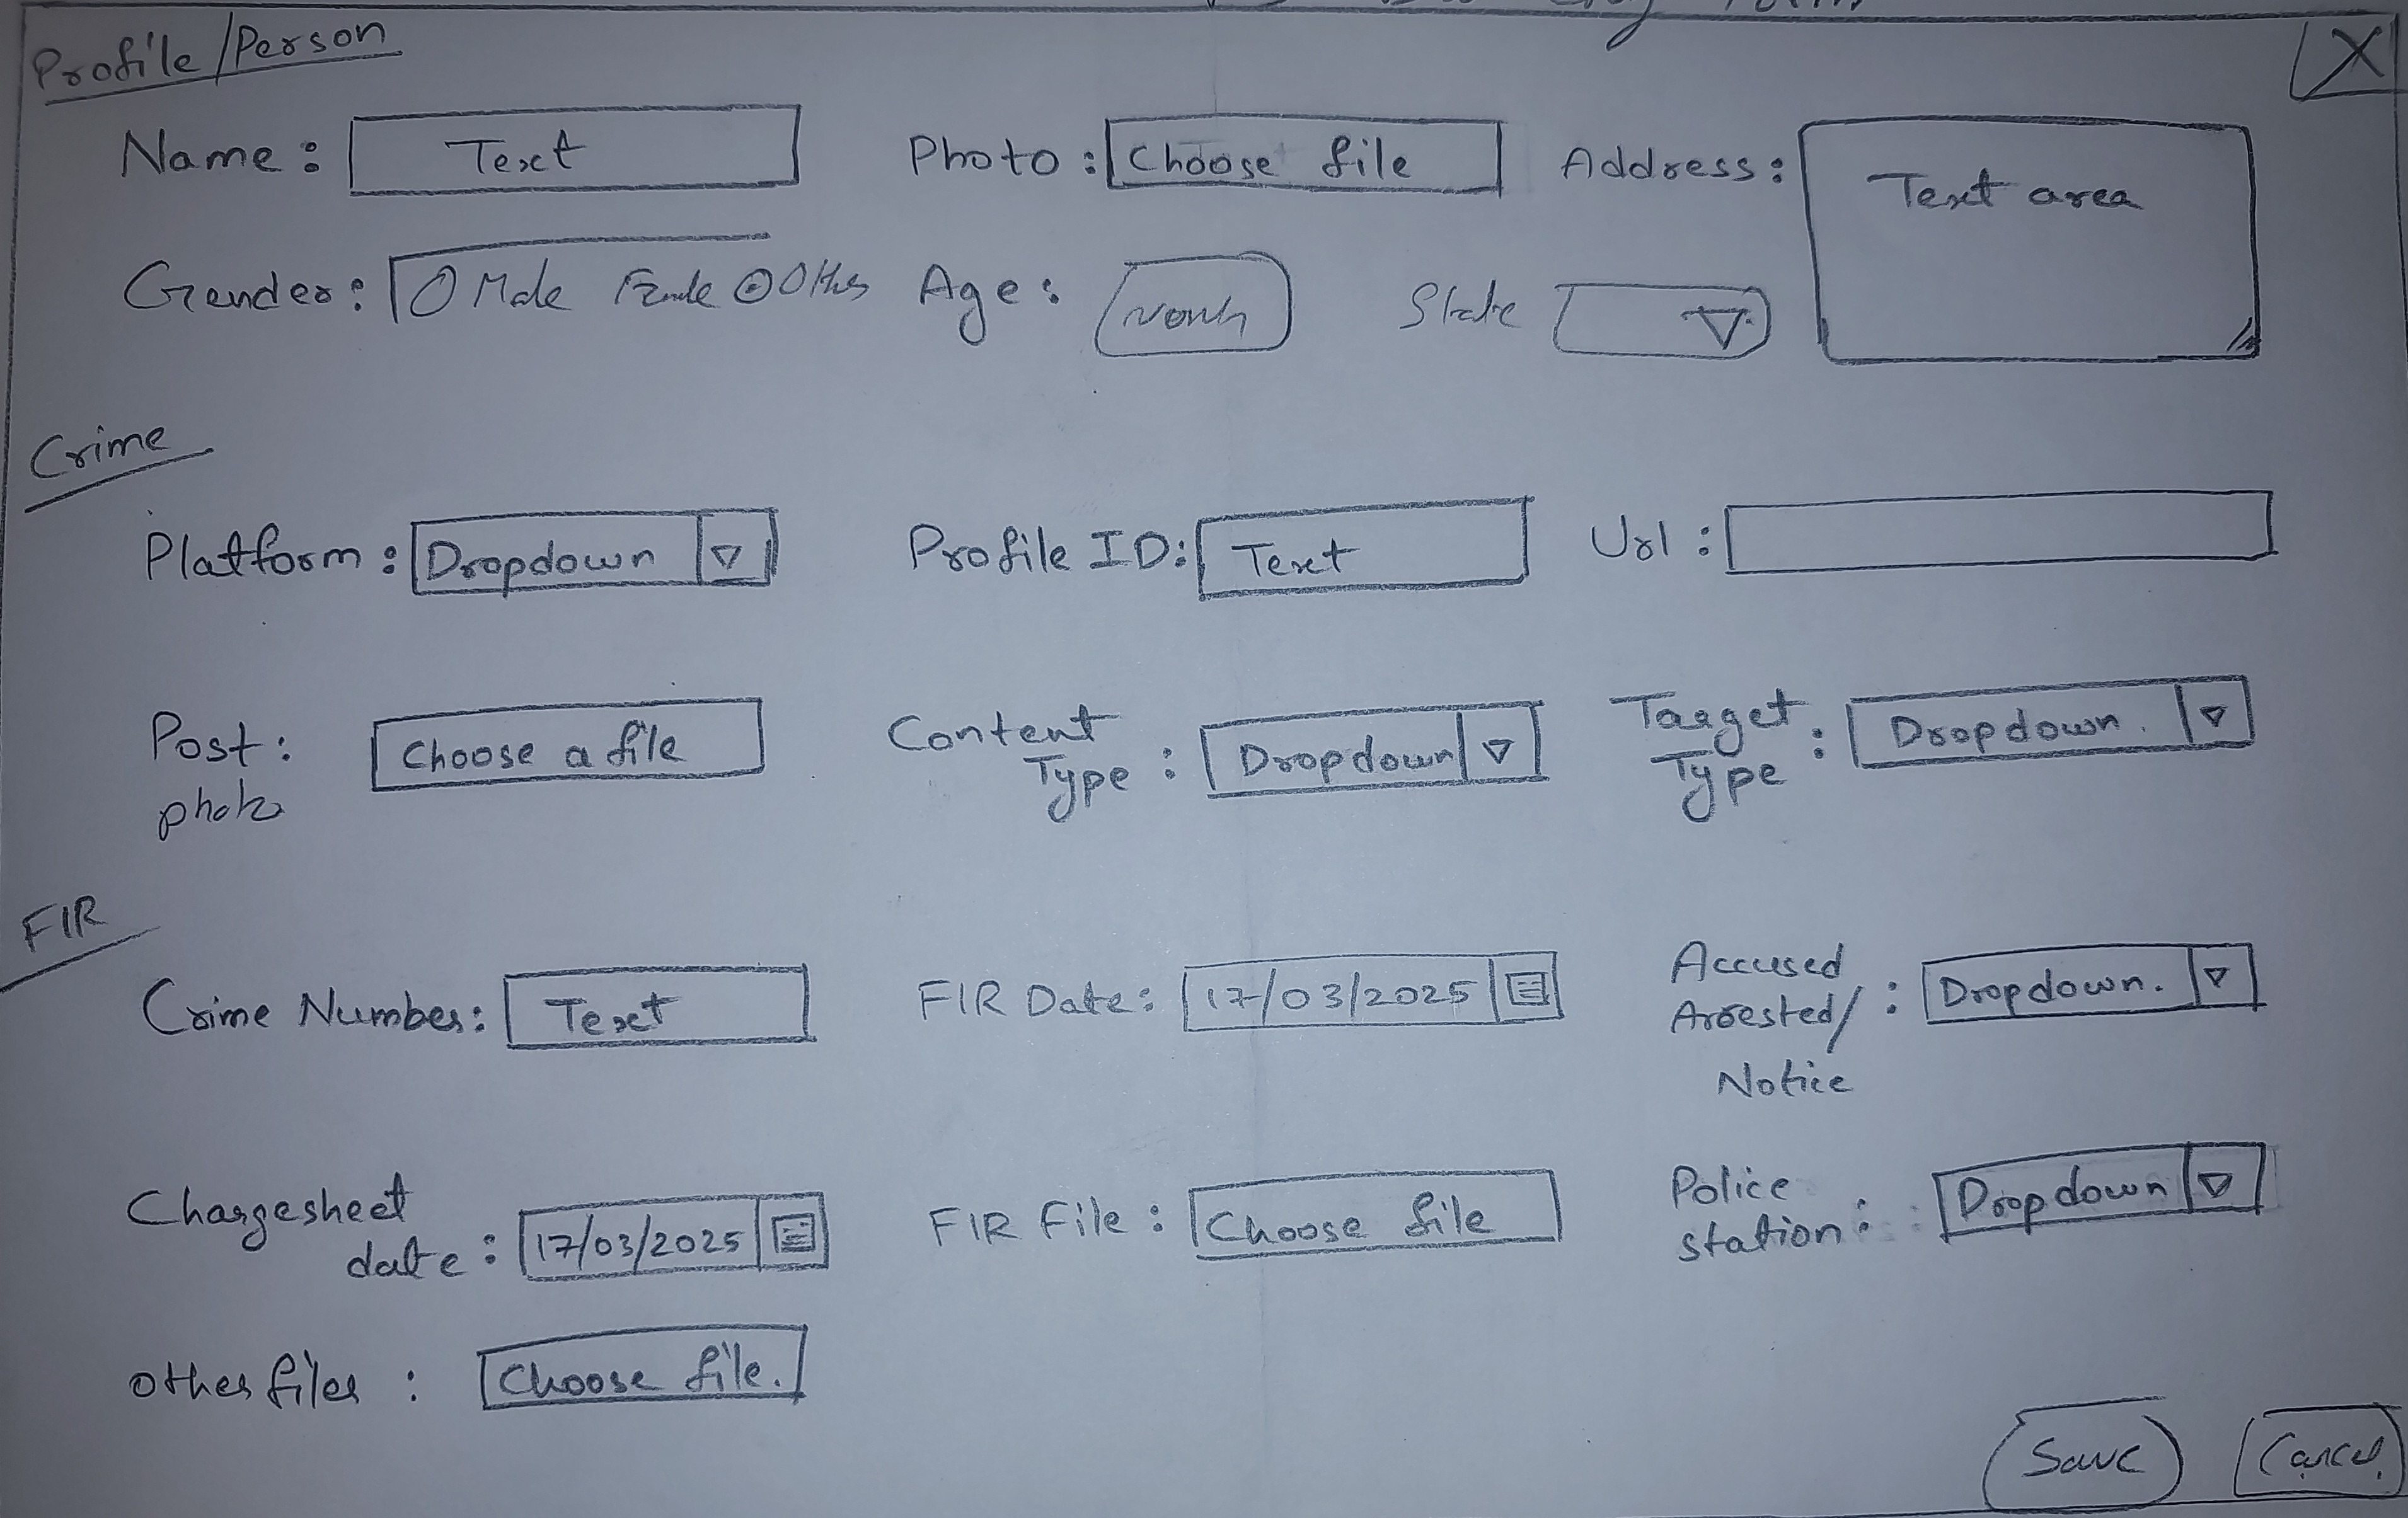 Form
Profile/Person
X
Name: Text
Photo: Choose file
Address: Text area
Gender: Male Female Other
Age:
State
Crime
Platform: Dropdown
Profile ID: Text
Url:
Post: photo
Choose a file
Content Type: Dropdown
Target Type: Dropdown.
FIR
Crime Number: Text
FIR Date: 17/03/2025
Accused Arrested/ Notice: Dropdown.
Chargesheet date: 17/03/2025
FIR File: Choose file
Police station: Dropdown
other files: Choose file.
Save
Cancel